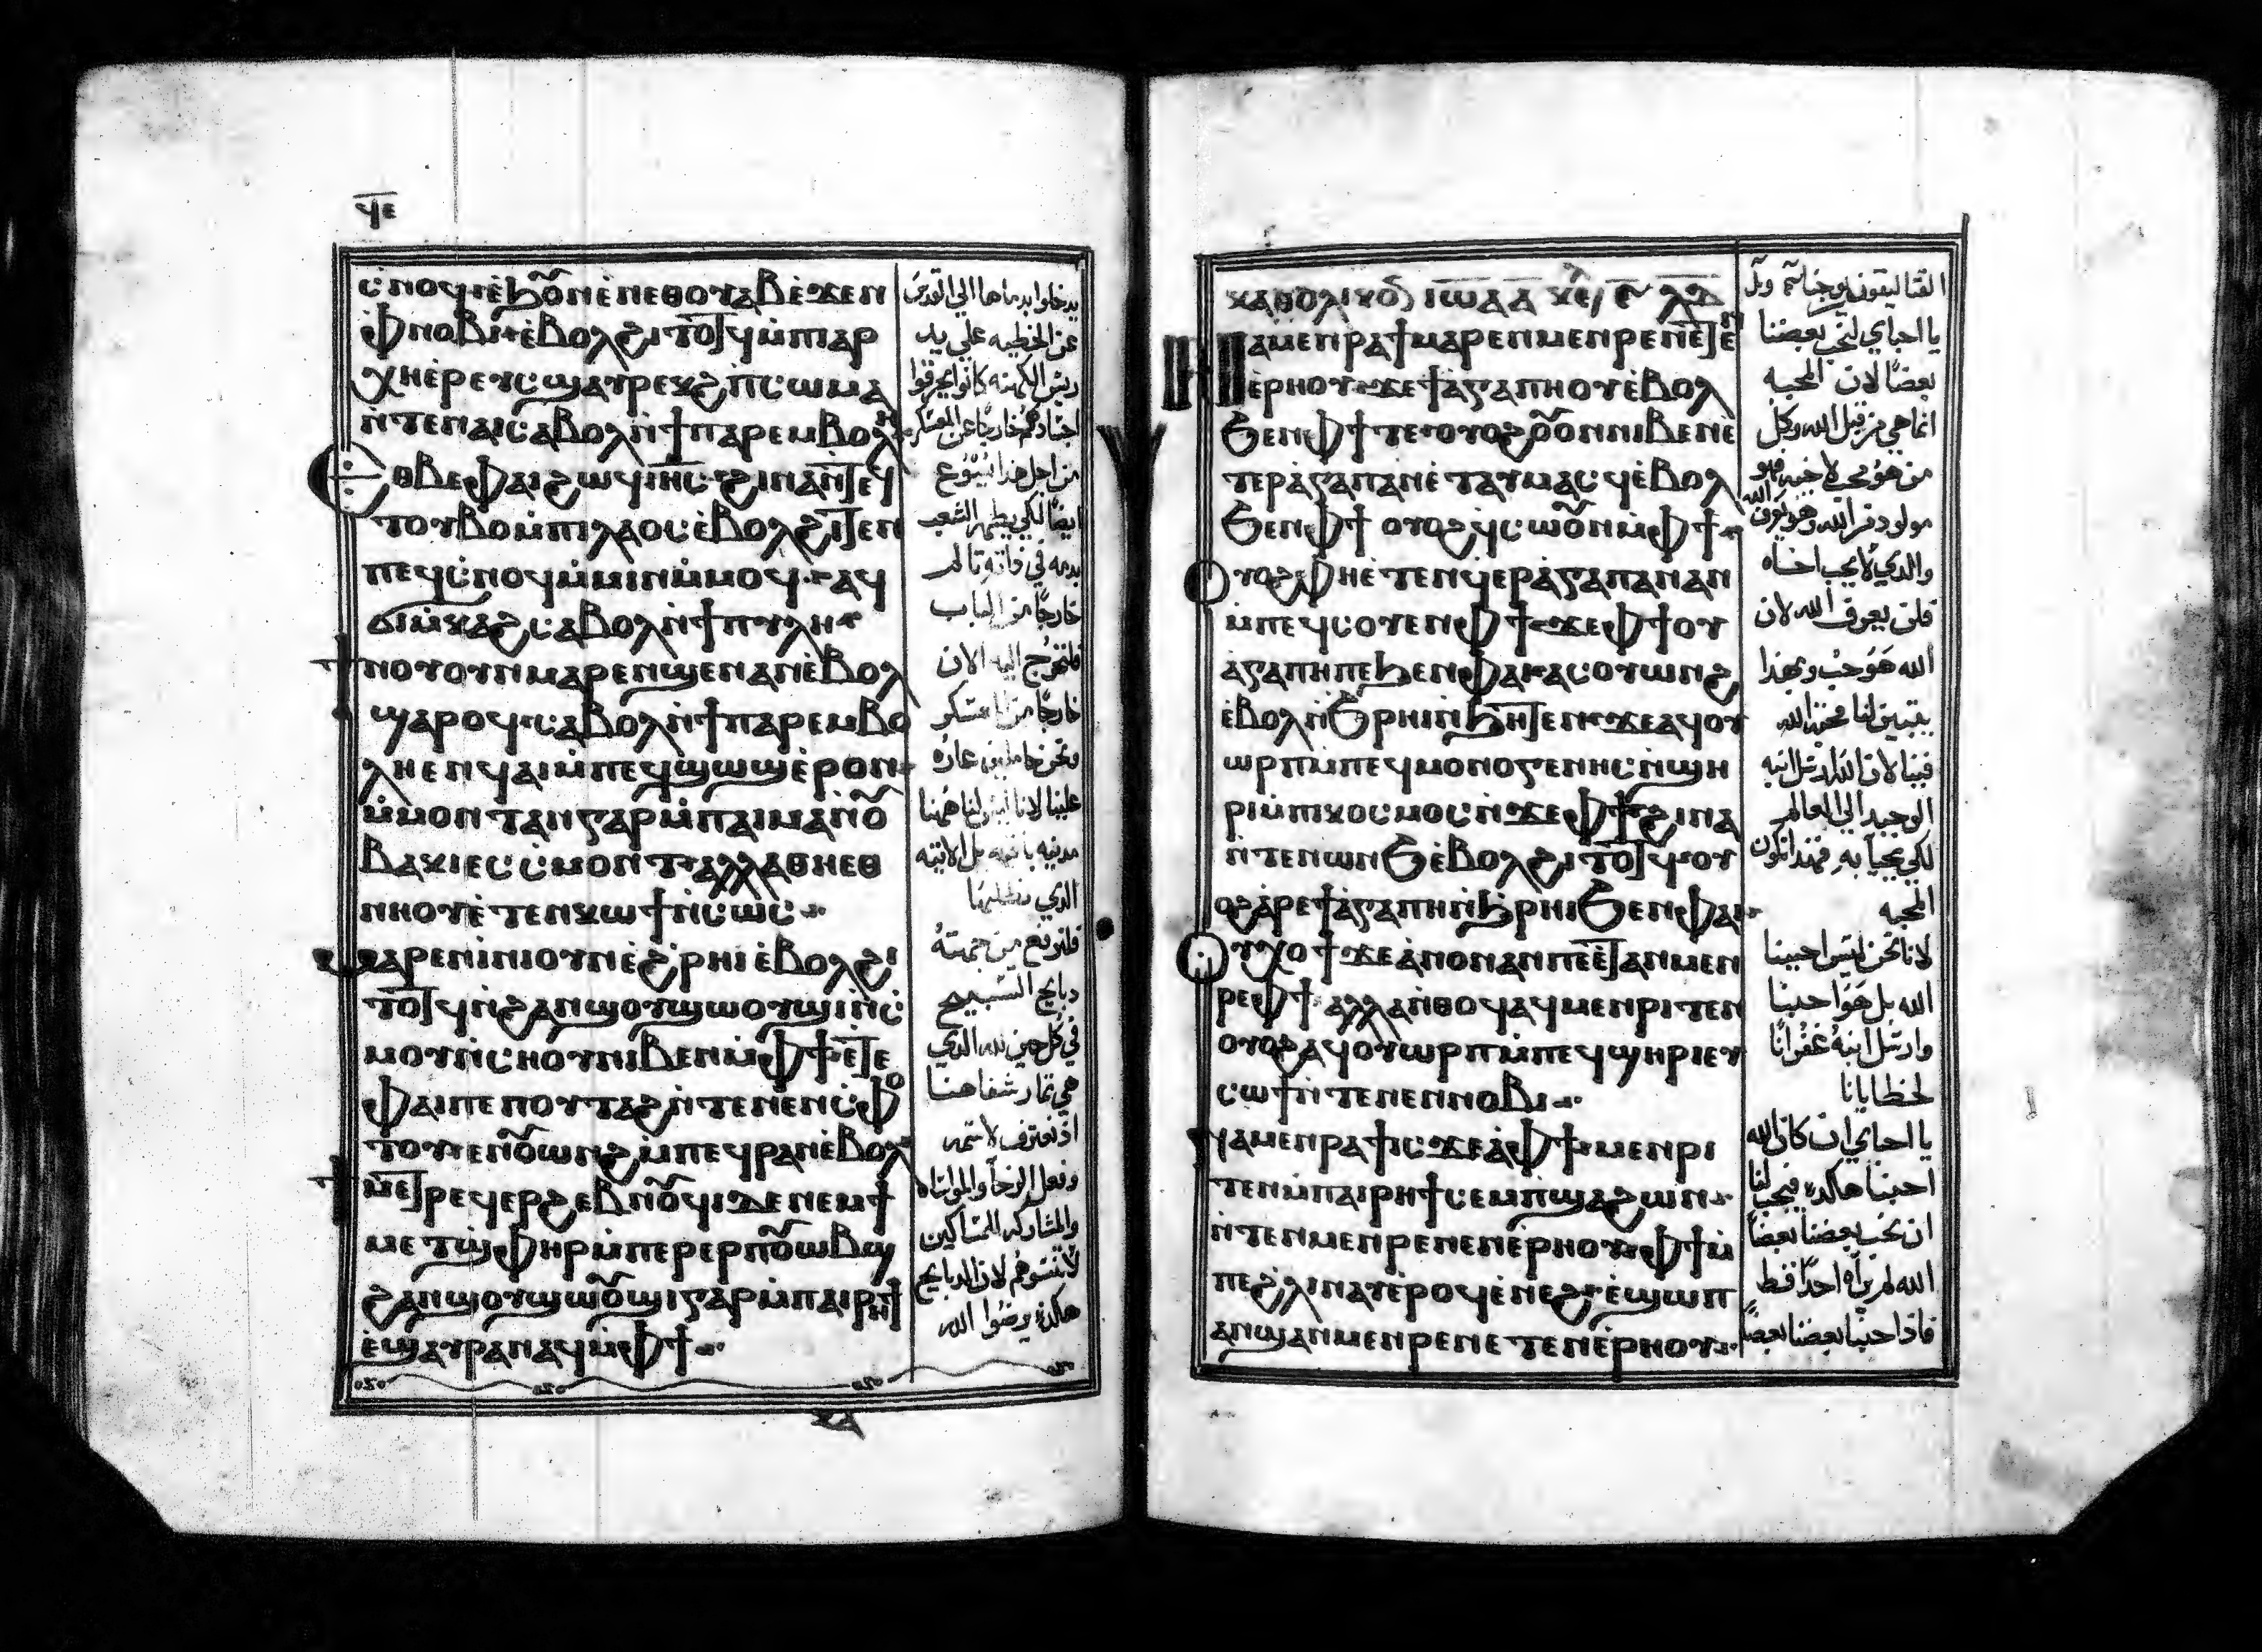 ϥⲉ
ⲥⲛⲟϥ ⲉϧⲟⲩⲛ ⲉⲛⲉⲑⲟⲩⲁⲃ ⲉϫⲉⲛ
ⲫⲛⲟⲃⲓ ⲉⲃⲟⲗ ϩⲓⲧⲟⲧϥ ⲙⲡⲓⲁⲣ
ⲭⲏⲉⲣⲉⲩⲥ ϣⲁⲩⲣⲉⲕϩ ⲡⲥⲱⲙⲁ
ⲛⲧⲉⲛⲁⲓ ⲥⲁⲃⲟⲗ ⲛϯⲡⲁⲣⲉⲙⲃⲟⲗⲏ
ⲉⲑⲃⲉⲫⲁⲓ ϩⲱϥ ⲓⲏⲥ ϩⲓⲛⲁ ⲛⲧⲉϥ
ⲧⲟⲩⲃⲟ ⲙⲡⲓⲗⲁⲟⲥ ⲉⲃⲟⲗ ϩⲓⲧⲉⲛ
ⲡⲉϥⲥⲛⲟϥ ⲙⲙⲓⲛ ⲙⲙⲟϥ ⲁϥ
ϭⲓⲙⲕⲁϩ ⲥⲁⲃⲟⲗ ⲛϯⲡⲩⲗⲏ
ϯⲛⲟⲩ ⲟⲩⲛ ⲙⲁⲣⲉⲛϣⲉⲛⲁⲛ ⲉⲃⲟⲗ
ϣⲁⲣⲟϥ ⲥⲁⲃⲟⲗ ⲛϯⲡⲁⲣⲉⲙⲃⲟ
ⲗⲏ ⲉⲛϥⲁⲓ ⲙⲡⲉϥϣⲱϣ ⲉⲣⲟⲛ
ⲙⲙⲟⲛⲧⲁⲛ ⲅⲁⲣ ⲙⲡⲁⲓⲙⲁ ⲛⲟⲩ
ⲃⲁⲕⲓ ⲉⲥⲥⲙⲟⲛⲧ ⲁⲗⲗⲁ ⲑⲏⲉⲑ
ⲛⲏⲟⲩ ⲉⲧⲉⲛⲕⲱϯ ⲛⲥⲱⲥ
ⲙⲁⲣⲉⲛⲓⲛⲓ ⲟⲩⲛ ⲉϩⲣⲏⲓ ⲉⲃⲟⲗ ϩⲓ
ⲧⲟⲧϥ ⲛϩⲁⲛϣⲟⲩϣⲱⲟⲩϣⲓ ⲛⲥ
ⲙⲟⲩ ⲛⲥⲛⲟⲩ ⲛⲓⲃⲉⲛ ⲙⲫϯ ⲉⲧⲉ
ⲫⲁⲓ ⲡⲉ ⲡⲟⲩⲧⲁϩ ⲛⲧⲉⲛⲉⲛⲥⲫⲟ
ⲧⲟⲩ ⲉⲛⲟⲩⲱⲛϩ ⲙⲡⲉϥⲣⲁⲛ ⲉⲃⲟⲗ
ϯⲙⲉⲧⲣⲉϥⲉⲣϩⲉⲃⲛⲟⲩϥⲓ ⲇⲉ ⲛⲉⲙϯ
ⲙⲉⲧϣⲫⲏⲣ ⲙⲡⲉⲣⲉⲣⲡⲟⲩⲱⲃϣ
ϩⲁⲛϣⲟⲩϣⲱⲟⲩϣⲓ ⲅⲁⲣ ⲙⲡⲁⲓⲣⲏϯ
ⲉϣⲁⲩⲣⲁⲛⲁϥ ⲙⲫϯ
يدخلوا بدماها الي القدس
عن الخطيه علي يد
ريس الكهنه كانوا يحرقوا
اجسادهم خارجًا عن المعسكر
من اجل هذا يسوع
ايضًا لكي يطهر الشعب
بدمه في ذاته تالم
خارجًا من الباب
فلنخرج اليه الان
خارجًا من المعسكر
ونحن حاملين عاره
علينا لانا ليس لنا ههنا
مدينه باقيه بل الاتيه
الذي نطلبها
فلنرفع من جهته
دبايح التسبيح
في كل حين لله الذي
هي تمار شفاهنا
اذ نعترف لاسمه
وفعل الوخا والمواساه
والمشاركه للمساكين
لا تنسوهم لان الدبايح
هكذه يرضوا الله
ⲕⲁⲑⲟⲗⲓⲕⲟⲛ ⲓⲱⲁ ⲁ ⲕⲉⲫ
ⲛⲁⲙⲉⲛⲣⲁϯ ⲙⲁⲣⲉⲛⲙⲉⲛⲣⲉ ⲛⲉⲧⲉⲛ
ⲉⲣⲏⲟⲩ ϫⲉ ϯⲁⲅⲁⲡⲏ ⲟⲩⲉⲃⲟⲗ
ϧⲉⲛ ⲫϯ ⲧⲉ ⲟⲩⲟϩ ⲟⲩⲟⲛ ⲛⲓⲃⲉⲛ ⲉ
ⲧⲉⲣⲁⲅⲁⲡⲁⲛ ⲉⲧⲁⲩⲙⲁⲥϥ ⲉⲃⲟⲗ
ϧⲉⲛ ⲫϯ ⲟⲩⲟϩ ϥⲥⲱⲟⲩⲛ ⲙⲫϯ
ⲟⲩⲟϩ ⲫⲏ ⲉⲧⲉⲛϥⲉⲣⲁⲅⲁⲡⲁⲛ ⲁⲛ
ⲙⲡⲉϥⲥⲟⲩⲉⲛ ⲫϯ ϫⲉ ⲫϯ ⲟⲩ
ⲁⲅⲁⲡⲏ ⲡⲉ ϧⲉⲛ ⲫⲁⲓ ⲁⲥⲟⲩⲱⲛϩ
ⲉⲃⲟⲗ ⲛϧⲣⲏⲓ ⲛϧⲏⲧⲉⲛ ϫⲉ ⲁϥⲟⲩ
ⲱⲣⲡ ⲙⲡⲉϥⲙⲟⲛⲟⲅⲉⲛⲏⲥ ⲛϣⲏ
ⲣⲓ ⲙⲡⲓⲕⲟⲥⲙⲟⲥ ⲛϫⲉ ⲫϯ ϩⲓⲛⲁ
ⲛⲧⲉⲛⲱⲛϧ ⲉⲃⲟⲗ ϩⲓⲧⲟⲧϥ ⲟⲩ
ⲟϩ ⲁⲣⲉ ϯⲁⲅⲁⲡⲏ ⲛϧⲣⲏⲓ ϧⲉⲛ ⲫⲁⲓ
ⲟⲩⲭⲟϯ ϫⲉ ⲁⲛⲟⲛ ⲁⲛ ⲡⲉ ⲉⲧⲁⲛⲙⲉⲛ
ⲣⲉ ⲫϯ ⲁⲗⲗⲁ ⲛⲑⲟϥ ⲁϥⲙⲉⲛⲣⲓⲧⲉⲛ
ⲟⲩⲟϩ ⲁϥⲟⲩⲱⲣⲡ ⲙⲡⲉϥϣⲏⲣⲓ ⲉⲩ
ⲥⲱϯ ⲛⲧⲉⲛⲉⲛⲛⲟⲃⲓ
ⲛⲁⲙⲉⲛⲣⲁϯ ⲓⲥϫⲉ ⲁ ⲫϯ ⲙⲉⲛⲣⲓ
ⲧⲉⲛ ⲙⲡⲁⲓⲣⲏϯ ⲥⲉⲙⲡϣⲁ ϩⲱⲛ
ⲛⲧⲉⲛⲙⲉⲛⲣⲉ ⲛⲉⲛⲉⲣⲏⲟⲩ ⲫϯ ⲙ
ⲡⲉ ϩⲗⲓ ⲛⲁⲩ ⲉⲣⲟϥ ⲉⲛⲉϩ ⲉϣⲱⲡ
ⲁⲛϣⲁⲛⲙⲉⲛⲣⲉ ⲛⲉⲧⲉⲛⲉⲣⲏⲟⲩ
القتاليقون يوحنا
يا احباي لنحب بعضنا
بعضًا لان المحبه
انما هي من قبل الله وكل
من هو محب لاخيه فهو
مولود من الله وهو يعرف الله
والدي لا يحب اخاه
فلن يعرف الله لان
الله هو حب وبهذا
يتبين لنا محبة الله
فينا لان الله ارسل ابنه
الوحيد الي العالم
لكي نحيا به فهذا تكون
المحبه
لانا نحن ليس احببنا
الله بل هو احبنا
وارسل ابنه غفرانًا
لخطايانا
يا احباي ان كان الله
احبنا هاكده فيجب لنا
ان نحب بعضنا بعضًا
الله لم يراه احدًا قط
فاذا احببنا بعضنا بعضًا